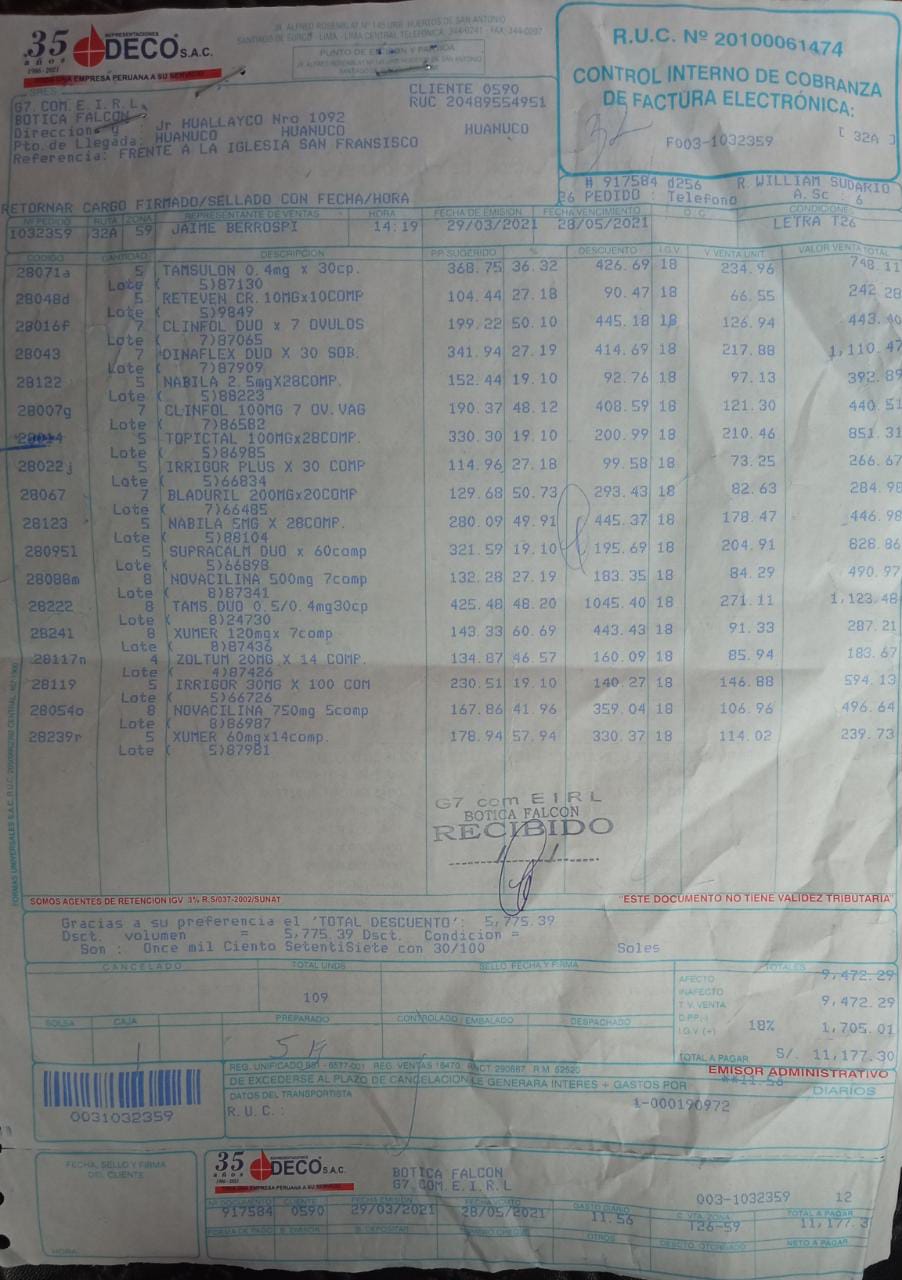 35 años 1986-2021
REPRESENTACIONES
DECO S.A.C.
UNA EMPRESA PERUANA A SU SERVICIO
JR. ALFRED ROSENBLAT Nº 145 URB. HUERTOS DE SAN ANTONIO
SANTIAGO DE SURCO - LIMA - LIMA CENTRAL TELEFONICA: 344-0241 - FAX: 344-0297
PUNTO DE EMISION Y PARTIDA
R.U.C. Nº 20100061474
CONTROL INTERNO DE COBRANZA
DE FACTURA ELECTRÓNICA:
32
F003-1032359 [ 32A ]
SRES.
CLIENTE 0590
RUC 20489554951
G7.COM.E.I.R.L.
BOTICA FALCON
Direccion y Jr HUALLAYCO Nro 1092
Pto. de Llegada: HUANUCO HUANUCO HUANUCO
Referencia: FRENTE A LA IGLESIA SAN FRANSISCO
# 917584 d256 R.WILLIAM SUDARIO
RETORNAR CARGO FIRMADO/SELLADO CON FECHA/HORA
26 PEDIDO : Telefono A.Sc 6
Nº PEDIDO RUTA ZONA REPRESENTANTE DE VENTAS HORA FECHA DE EMISION FECHA VENCIMIENTO O.C. CONDICIONES
1032359 32A 59 JAIME BERROSPI 14:19 29/03/2021 28/05/2021 LETRA T26
CODIGO CANTIDAD DESCRIPCION P.P. SUGERIDO % DESCUENTO I.G.V. V.VENTA UNIT. VALOR VENTA TOTAL
28071a 5 TAMSULON 0.4mg x 30cp. 368.75 36.32 426.69 18 234.96 748.11
Lote ( 5)87130
28048d 5 RETEVEN CR.10MGx10COMP 104.44 27.18 90.47 18 66.55 242.28
Lote ( 5)9849
28016f 7 CLINFOL DUO x 7 OVULOS 199.22 50.10 445.18 18 126.94 443.40
Lote ( 7)87065
28043 7 DINAFLEX DUO X 30 SOB. 341.94 27.19 414.69 18 217.88 1,110.47
Lote ( 7)87909
28122 5 NABILA 2.5mgX28COMP. 152.44 19.10 92.76 18 97.13 392.89
Lote ( 5)88223
28007g 7 CLINFOL 100MG 7 OV.VAG 190.37 48.12 408.59 18 121.30 440.51
Lote ( 7)86582
28014 5 TOPICTAL 100MGx28COMP. 330.30 19.10 200.99 18 210.46 851.31
Lote ( 5)86985
28022j 5 IRRIGOR PLUS X 30 COMP 114.96 27.18 99.58 18 73.25 266.67
Lote ( 5)66834
28067 7 BLADURIL 200MGx20COMP 129.68 50.73 293.43 18 82.63 284.98
Lote ( 7)66485
28123 5 NABILA 5MG X 28COMP. 280.09 49.91 445.37 18 178.47 446.98
Lote ( 5)88104
28095l 5 SUPRACALM DUO x 60comp 321.59 19.10 195.69 18 204.91 828.86
Lote ( 5)66898
28088m 8 NOVACILINA 500mg 7comp 132.28 27.19 183.35 18 84.29 490.97
Lote ( 8)87341
28222 8 TAMS.DUO 0.5/0.4mg30cp 425.48 48.20 1045.40 18 271.11 1,123.48
Lote ( 8)24730
28241 8 XUMER 120mgx 7comp 143.33 60.69 443.43 18 91.33 287.21
Lote ( 8)87436
28117n 4 ZOLTUM 20MG X 14 COMP. 134.87 46.57 160.09 18 85.94 183.67
Lote ( 4)87426
28119 5 IRRIGOR 30MG X 100 COM 230.51 19.10 140.27 18 146.88 594.13
Lote ( 5)66726
28054o 8 NOVACILINA 750mg 5comp 167.86 41.96 359.04 18 106.96 496.64
Lote ( 8)86987
28239r 5 XUMER 60mgx14comp. 178.94 57.94 330.37 18 114.02 239.73
Lote ( 5)87981
G7 com EIRL
BOTICA FALCON
RECIBIDO
SOMOS AGENTES DE RETENCION IGV 3% R.S/037-2002/SUNAT
"ESTE DOCUMENTO NO TIENE VALIDEZ TRIBUTARIA"
Gracias a su preferencia el 'TOTAL DESCUENTO': 5,775.39
Dsct. volumen = 5,775.39 Dsct. Condicion =
Son : Once mil Ciento SetentiSiete con 30/100 Soles
CANCELADO TOTAL UNDS SELLO, FECHA Y FIRMA TOTALES
109
AFECTO 9,472.29
INAFECTO
T.V. VENTA 9,472.29
D.P.P.(-)
I.G.V (+) 18% 1,705.01
TOTAL A PAGAR S/. 11,177.30
BOLSA CAJA PREPARADO CONTROLADO / EMBALADO DESPACHADO
EMISOR ADMINISTRATIVO
DE EXCEDERSE AL PLAZO DE CANCELACION LE GENERARA INTERES + GASTOS POR **11.56 DIARIOS
DATOS DEL TRANSPORTISTA
1-000190972
R.U.C.:
0031032359
FECHA, SELLO Y FIRMA
DEL CLIENTE
HORA:
35 años 1986-2021
REPRESENTACIONES
DECO S.A.C.
UNA EMPRESA PERUANA A SU SERVICIO
BOTICA FALCON
G7.COM.E.I.R.L
003-1032359 12
Nº DOCUMENTO CLIENTE FECHA EMISION FECHA VENCTO GASTO DIARIO C. VTA. ZONA TOTAL A PAGAR
917584 0590 29/03/2021 28/05/2021 11.56 T26-59 11,177.3
FORMA DE PAGO B. EMISOR B. DEPOSITAR OTROS DSCTO. OTORGADO NETO A PAGAR